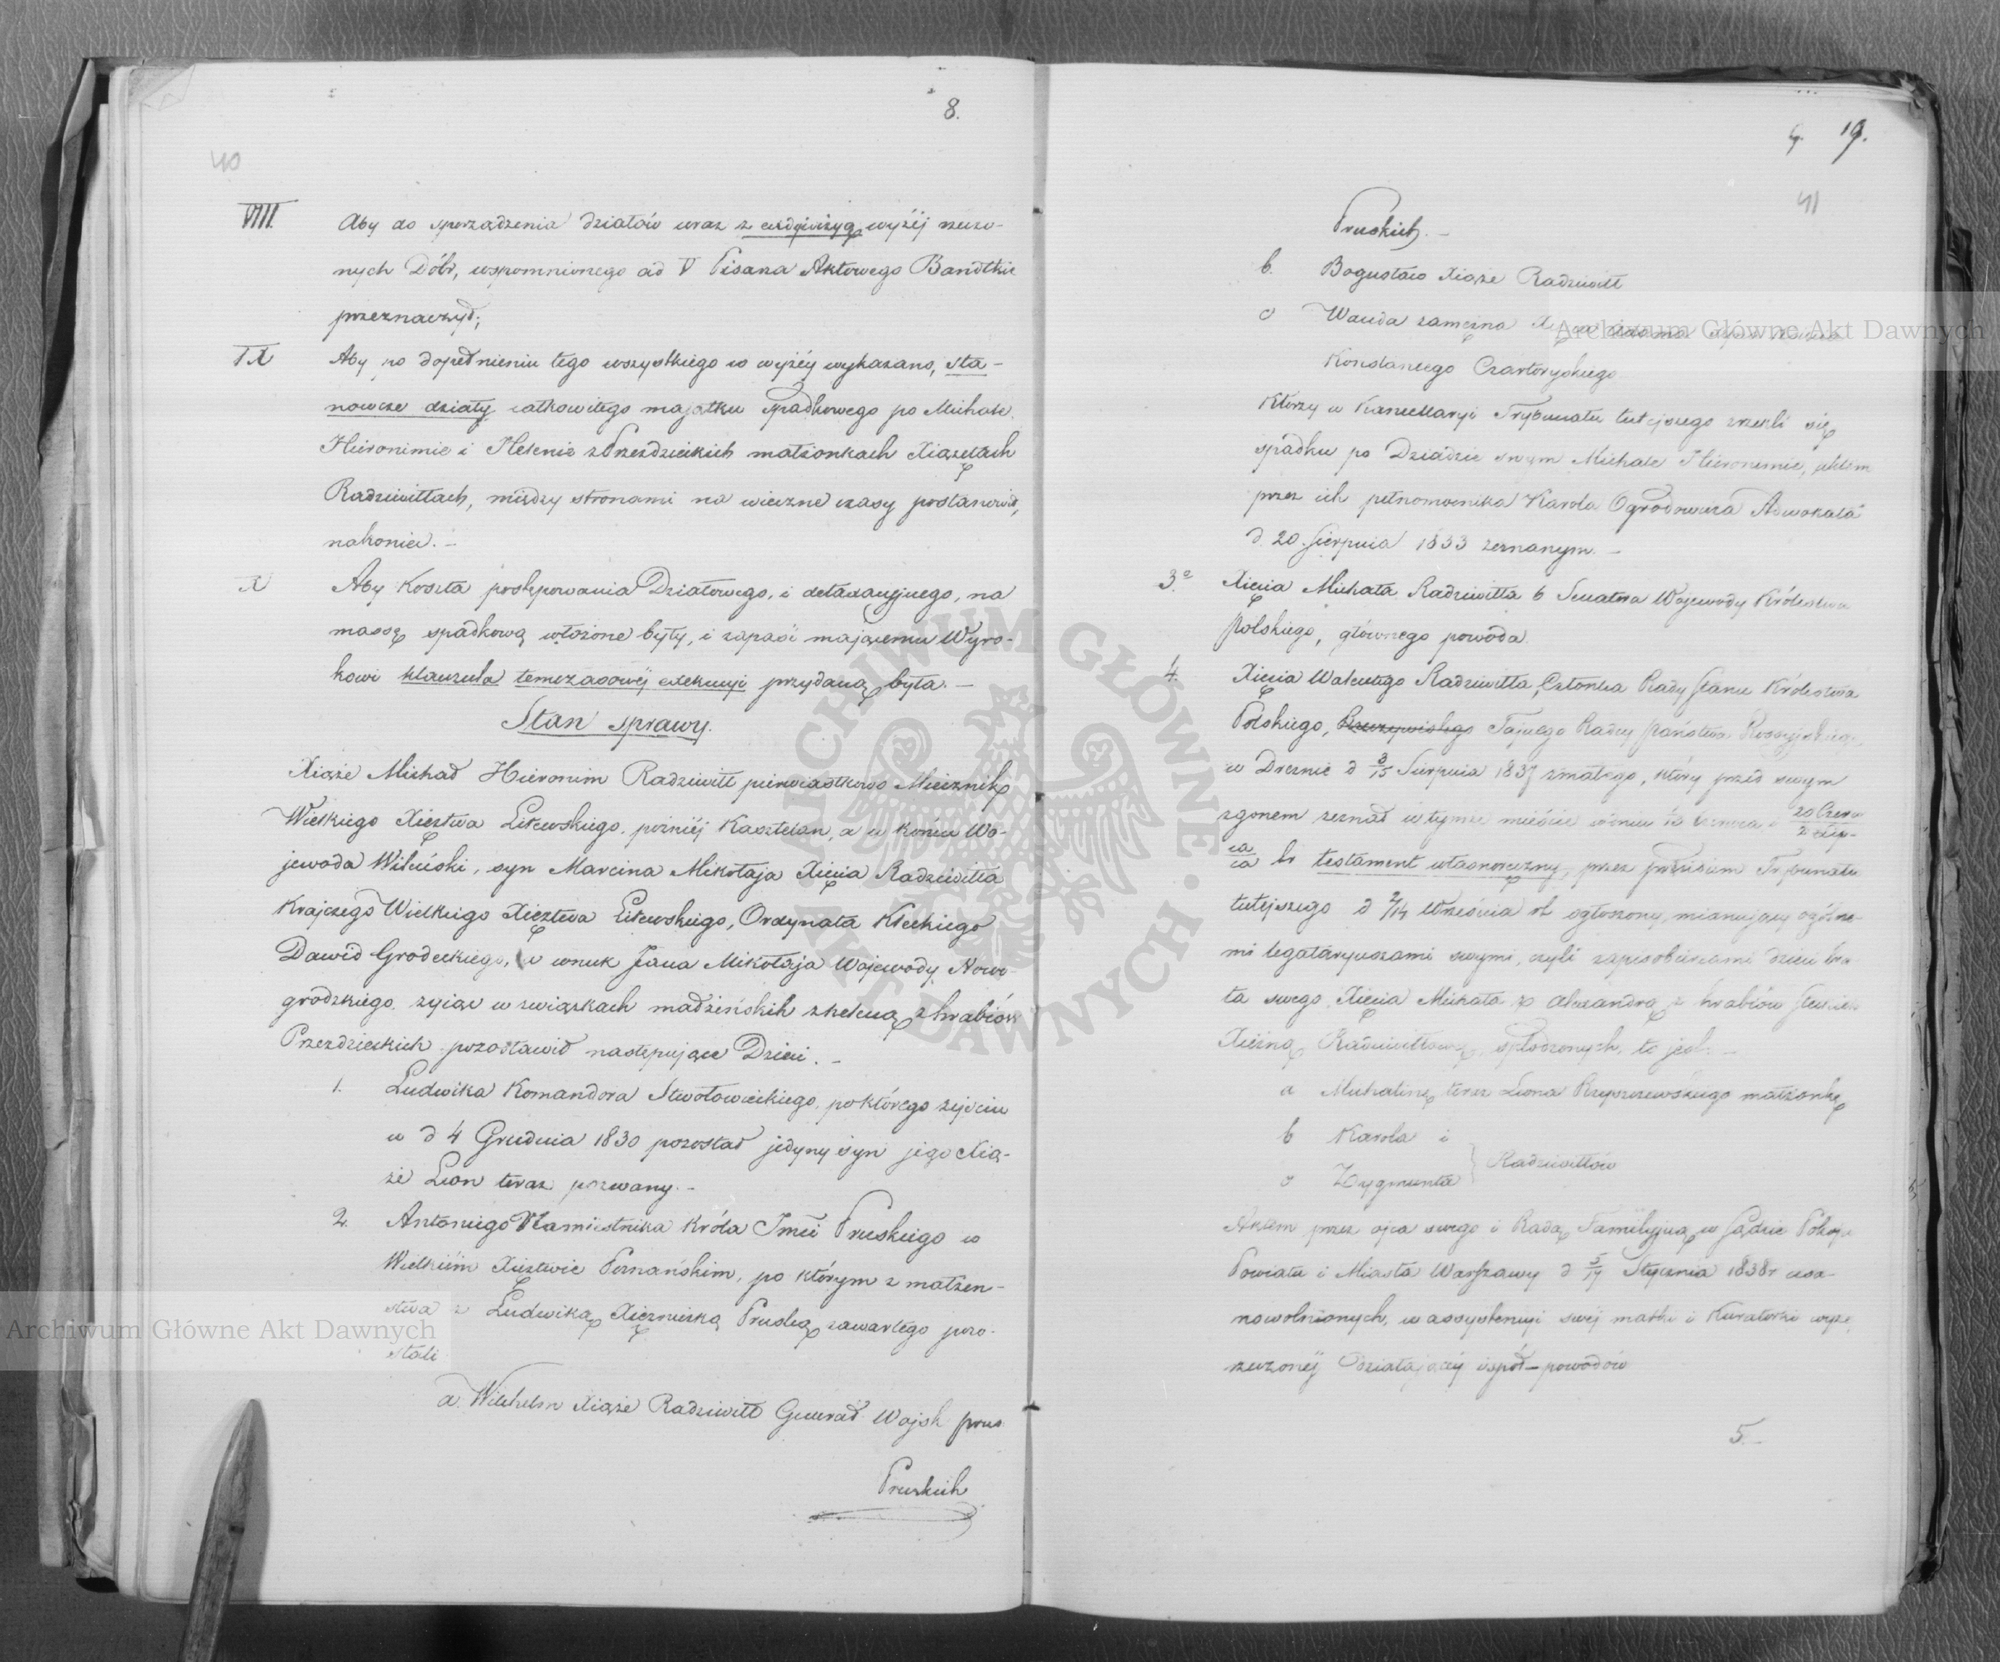 8.
40
VIII. Aby do sporządzenia działów wraz z wyżéj rzeczo-
nych Dóbr, wspomnionego ad V Pisarza Aktowego Bandtkie
przeznaczył;
IX Aby po dopełnieniu tego wszystkiego co wyżéy wykazano, sta-
nowcze działy całkowitego majątku spadkowego po Michale
Hieronimie i Helenie z Przezdzieckich małżonkach Xiążętach
Radziwiłłach, między stronami na wieczne czasy postanowił,
nakoniec. –
X Aby Koszta postępowania Działowego, i detaxacyjnego, na
massę spadkową włożone były, i zapaść mającemu Wyro-
kowi klauzula temczasowéj exekucyi przydaną była. –
Stan sprawy.
Xiąże Michał Hieronim Radziwiłł pierwiastkowo Miecznik
Wielkiego Xięztwa Litewskiego, poźniéj Kasztelan, a w końcu Wo-
jewoda Wileński, syn Marcina Mikołaja Xięcia Radziwiłła
Krajczego Wielkiego Xięztwa Litewskiego, Ordynata Kleckiego
Dawid Grodeckiego, a wnuk Jana Mikołaja Wojewody Nowo-
grodzkiego, żyiąc w związkach małżeńskich z Heleną z hrabiów
Przezdzieckich pozostawił następujące Dzieci. –
1. Ludwika Komandora Stwołowickiego, po którego zejściu
w d 4 Grudnia 1830 pozostał jedyny syn jego Xią-
że Leon teraz pozwany. –
2. Antoniego Namiestnika Króla Jmci Pruskiego w
Wielkiém Xięztwie Poznańskim, po którym z małżeń-
stwa z Ludwiką Xiężniczką Pruską zawartego pozo-
stali
a. Wilhelm Xiąże Radziwiłł Generał Wojsk prus
Pruskich
19.
41
Pruskich. –
b. Bogusław Xiąże Radziwiłł
c Wanda zamężna Xięcia Adama
Konstantego Czartoryskiego
Którzy w Kancellaryi Trybunału tutejszego zrzekli się
spadku po Dziadzie swym Michale Hieronimie, aktem
przez ich pełnomocnika Karola Ogrodowicza Adwokata
d. 20 Sierpnia 1833 zeznanym. –
3º Xięcia Michała Radziwiłła b Senatora Wojewody Królestwa
Polskiego, głównego powoda.
4. Xięcia Walentego Radziwiłła, Członka Rady Stanu Królestwa
Polskiego, Rzeczywistego Tajnego Radcy Państwa Rossyjskiego,
w Dreznie d 3/15 Sierpnia 1837 zmarłego, który przed swym
zgonem zeznał w tymże mieście 20 Czerw
ca br testament własnoręczny, przez Trybunału
tutejszego d 2/14 Września rb ogłoszony, mianujący ogólne-
mi legataryuszami swymi, czyli zapisobiercami dzieci bra-
ta swego Xięcia Michała z Alexandrą z hrabiów Steckich
Xiężną Radziwiłłową, spłodzonych, to jest –
a Michalinę teraz Leona Rzyszczewskiego małżonkę
b Karola i
c Zygmunta } Radziwiłłów
Aktem przez ojca swego i Radę Familijną w Sądzie Pokoju
Powiatu i Miasta Warszawy d 5/17 Stycznia 1838 r usa-
mowolnionych, w assystencyi swéj matki i Kuratorki wyżéj
rzeczonéj działającéj współ-powodów
5. –
Archiwum Główne Akt Dawnych
Archiwum Główne Akt Dawnych
ARCHIWUM GŁÓWNE AKT DAWNYCH